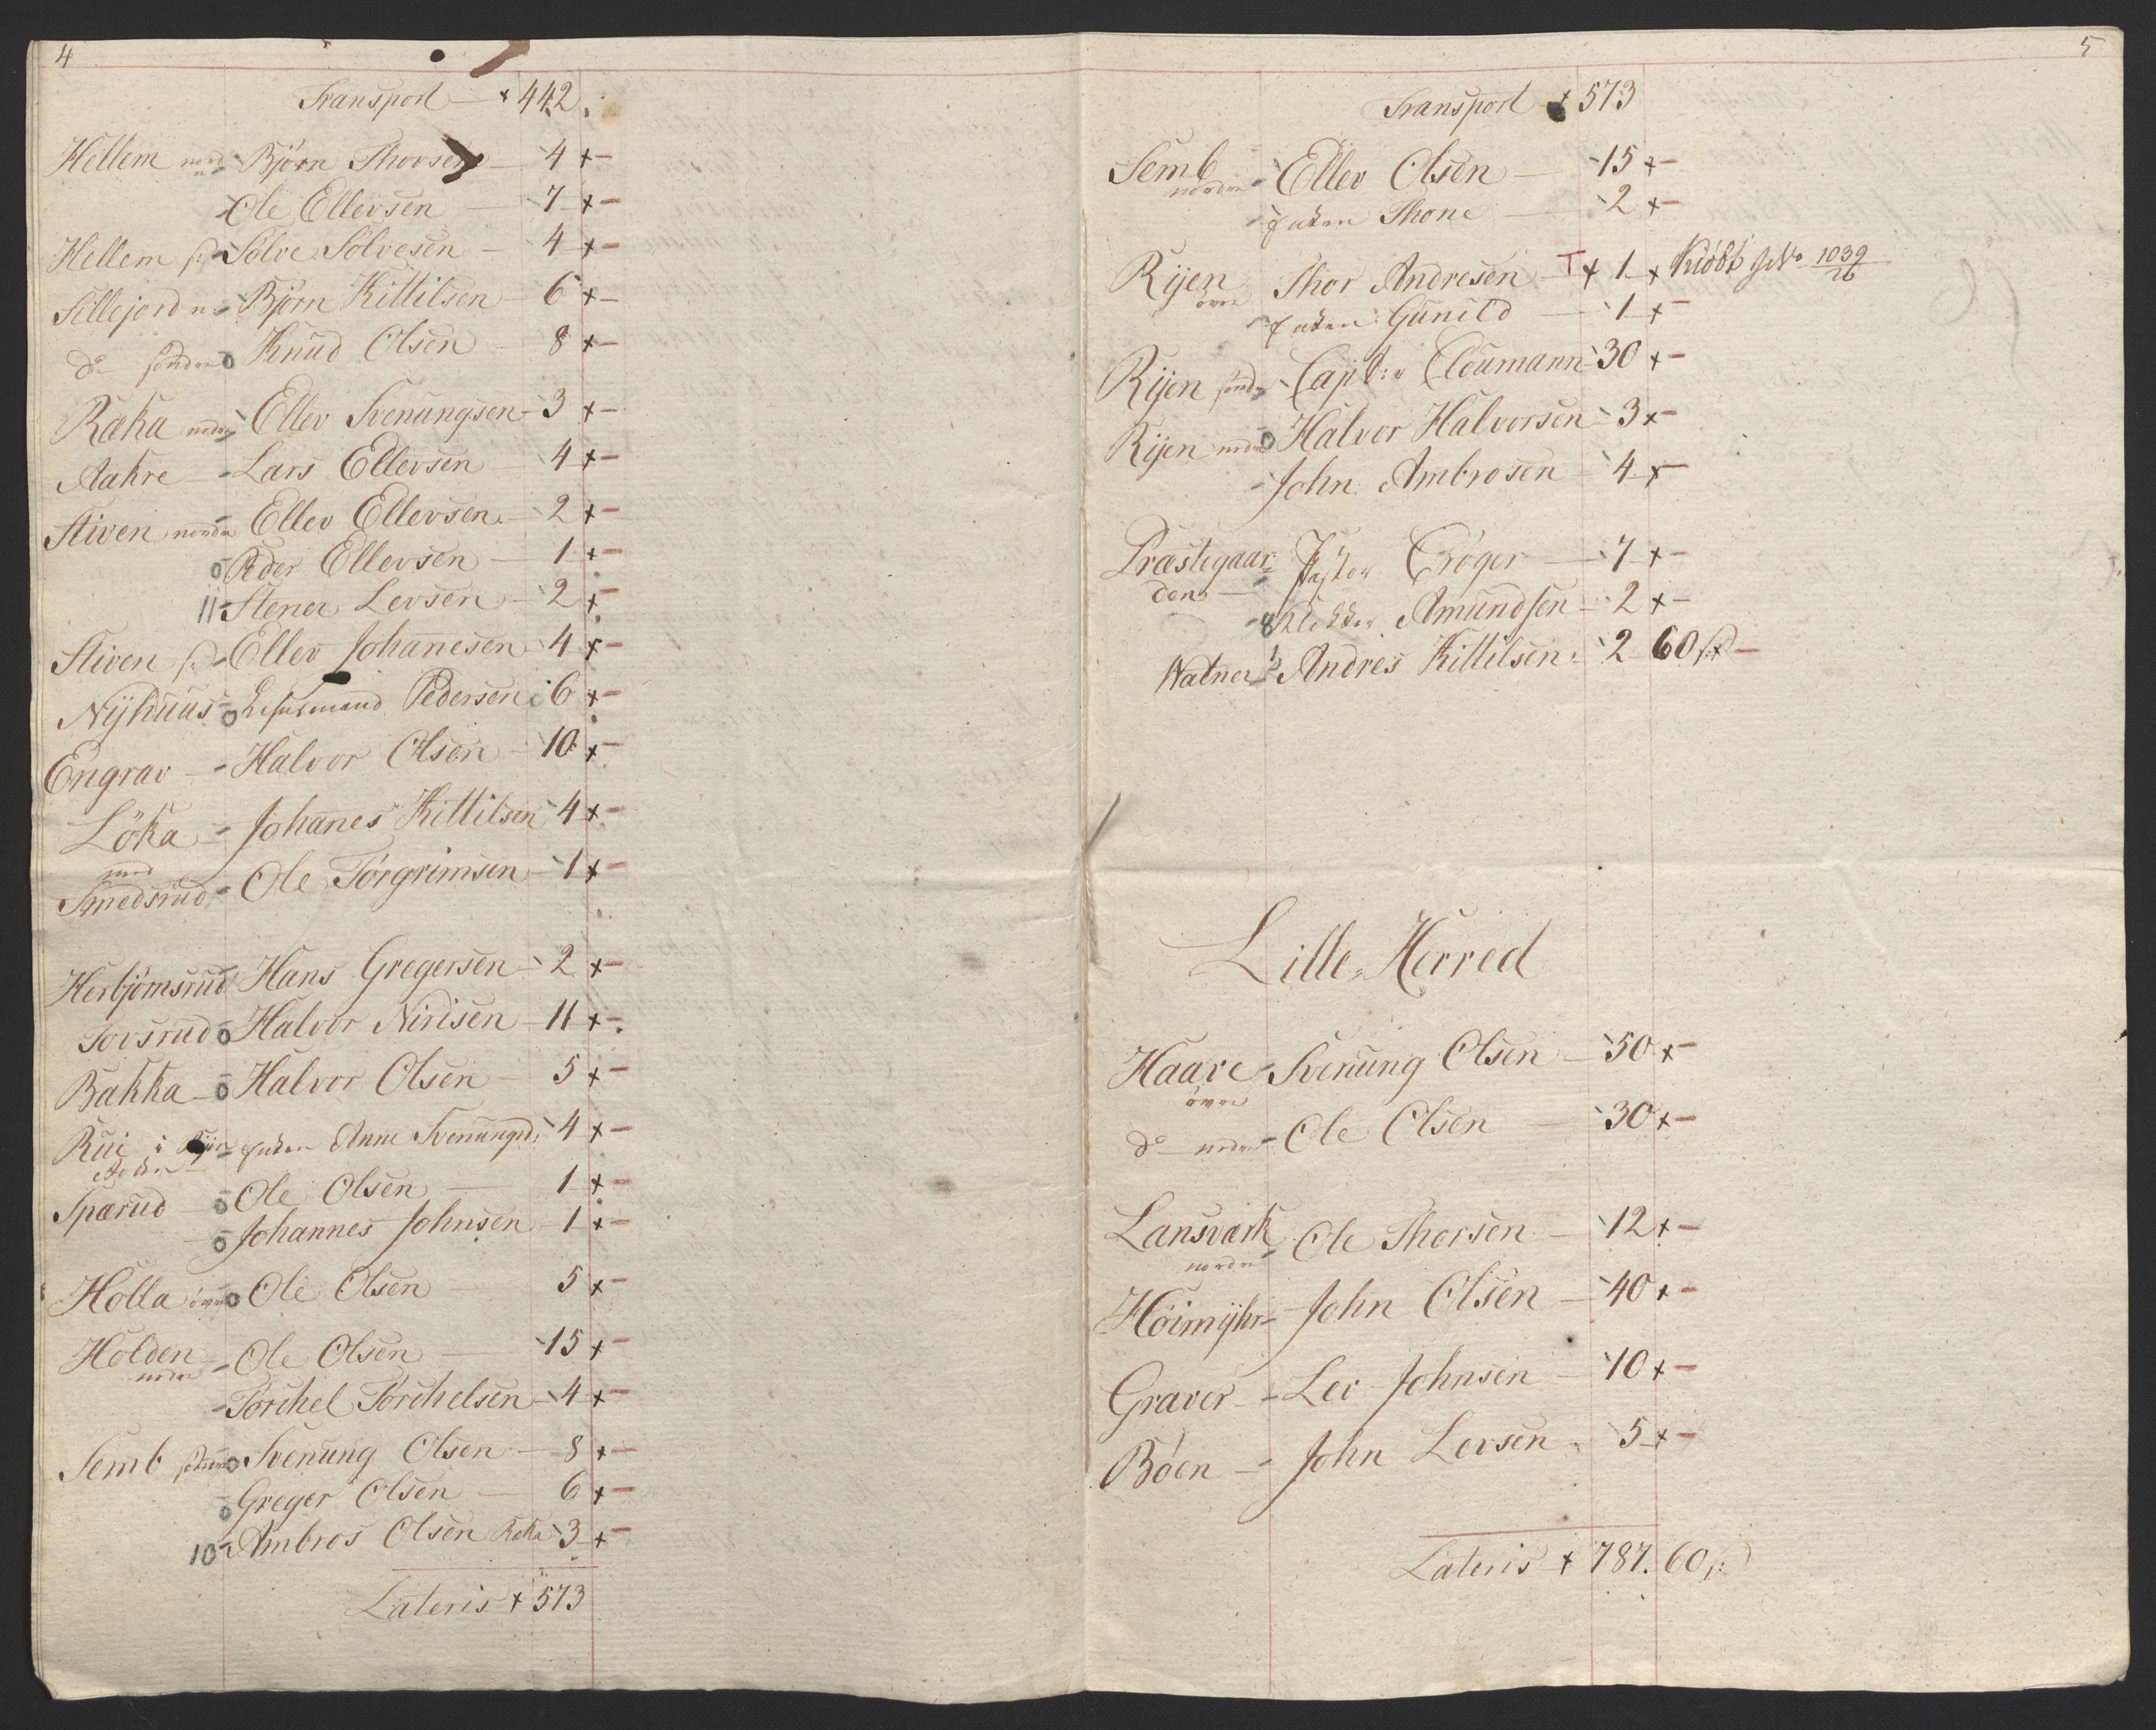 4
Transport × 442.
Hellem nord Bjørn Thorsen 4 × –
Ole Ellevsen 7 × –
Hellem s: Solve Solvesen 4 × –
Sillejord n: Bjørn Kittilsen 6 × –
do søndre o Knud Olsen 8 × –
Ræka nedre Ellev Svenungsen 3 × –
Aakre Lars Ellevsen 4 × –
Stiven nordre Ellev Ellevsen 2 × –
o Peder Ellevsen 1 × –
11 Stener Levsen 2 × –
Stiven s: Ellev Johanesen 4 × –
Nÿhuus o Lehnsmand Pedersen 6 × –
Engrav Halvor Olsen 10 × –
Löka Johanes Kittilsen 4 × –
Smedsrud Ole Torgrimsen 1 × –
Herbjørnsrud Hans Gregersen 2 × –
Tovsrud o Halvor Nirisen 11 × –
Bakka o Halvor Olsen 5 × –
Rui i enken Anne Svenungsd: 4 × –
Spærud o Ole Olsen 1 × –
o Johannes Johnsen 1 × –
Holla øvre o Ole Olsen 5 × –
Holden Ole Olsen 15 × –
nedre
Torchel Torchelsen 4 × –
Semb søndre o Svenung Olsen 8 × –
o Greger Olsen 6 × –
10 Ambros Olsen Ræka 3 × –
Lateris × 573
5
Transport × 573
Semb Ellev Olsen 15 × –
nordre
enken Thone 2 × –
Rÿen Thor Andresen T × 1 × Kiøbt No 1039/26
øvre
enken Gunild 1 × –
Rÿen sønd: Capt: v Cloumann 30 × –
Rÿen nedre o Halvor Halvorsen 3 × –
John Ambrosen 4 × –
Præstegaar= Pastor Crøger 7 × –
den
8 Klokker Amundsen 2 × –
Watner Andres Kittilsen 2 60 s: –
Lille-Herred
Haave Svenung Olsen 50 × –
øvre
do nedre Ole Olsen 30 × –
Lansværk Ole Thorsen 12 × –
nordre
Höimÿhr John Olsen 40 × –
Graver Lev Johnsen 10 × –
Bøen John Levsen 5 × –
Lateris × 787. 60 s: